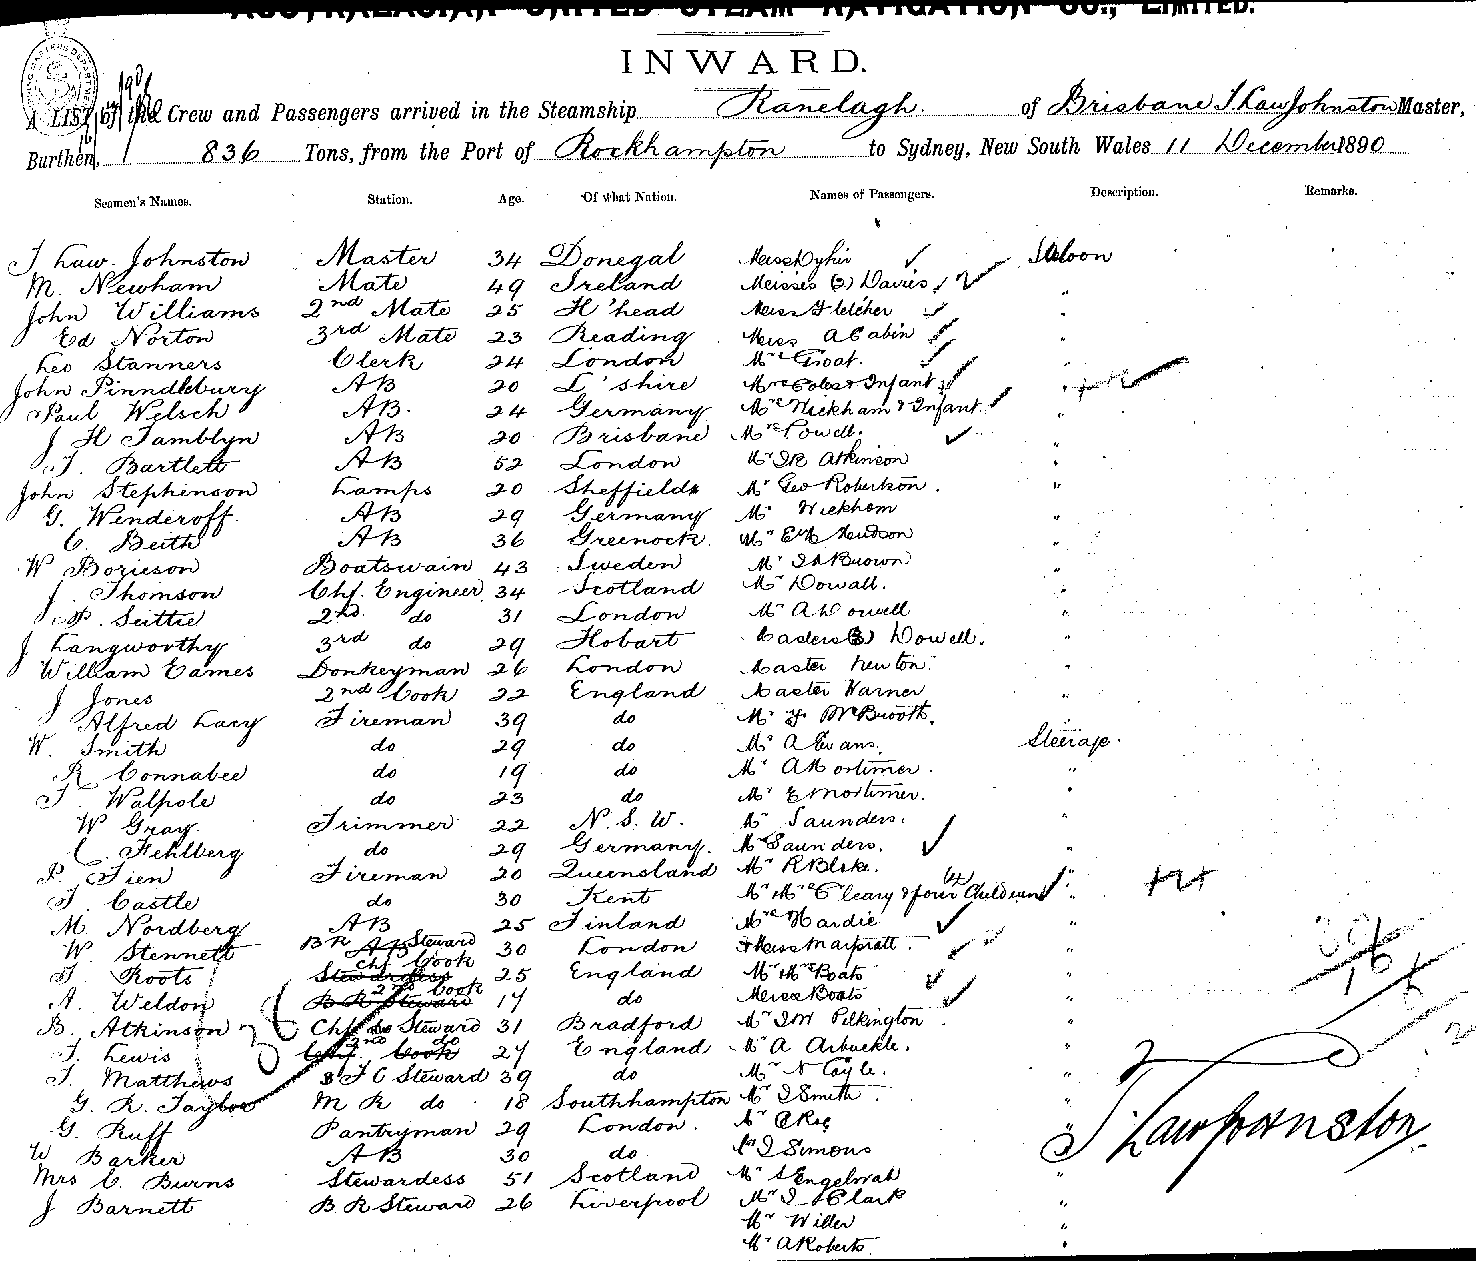 AUSTRALASIAN UNITED STEAM NAVIGATION CO., LIMITED.
INWARD.
A LIST of the Crew and Passengers arrived in the Steamship Ranelagh of Brisbane T. Law Johnston Master,
Burthen, 836 Tons, from the Port of Rockhampton to Sydney, New South Wales 11 December 1890
Seamen's Names. Station. Age. Of what Nation. Names of Passengers. Description. Remarks.
T Law Johnston Master 34 Donegal Miss Saloon
M. Newham Mate 49 Ireland Misses (2) Davies 2 "
John Williams 2nd Mate 25 H'head Miss Fletcher "
Ed Norton 3rd Mate 23 Reading Miss A Cabin "
Leo Stanners Clerk 24 London Mrs Groat. "
John Pinndlebury AB 20 L'shire Mrs Coles & Infant "
Paul Welsch AB. 24 Germany Mrs Wickham & Infant "
J H Tamblyn AB 20 Brisbane Mrs Powell. "
T. Bartlett AB 52 London Mr Atkinson "
John Stephenson Lamps 20 Sheffield Mr Geo Robertson. "
G. Wenderoff AB 29 Germany Mr Wickham "
C. Beith AB 36 Greenock Mr Hewdson "
W Borieson Boatswain 43 Sweden Mr Brown "
J. Thomson Chf. Engineer 34 Scotland Mr Dowall. "
P. Seittie 2nd do 31 London Mr A Dowell "
J Langworthy 3rd do 29 Hobart Masters (3) Dowell. "
William Eames Donkeyman 26 London Master Newton "
J Jones 2nd Cook 22 England Master Warner "
Alfred Lacy Fireman 39 do Mr
W. Smith do 29 do Mr A Evans. Steerage.
R Connabee do 19 do Mr A Mortimer. "
T. Walpole do 23 do Mr E Mortimer. "
W Gray Trimmer 22 N. S. W. Mr Saunders. "
C. Fehlberg do 29 Germany. Mrs Saunders. "
P. Tien Fireman 20 Queensland Mr R Blake. "
T. Castle do 30 Kent Mr & Mrs Cleary & four (4) Children "
M. Nordberg AB 25 Finland Mrs Hardie "
W. Stennett BR Steward 30 London & Miss Marpratt. "
T. Roots Chf Cook 25 England Mr & Mrs Boats "
A. Weldon 2nd Cook 17 do Miss Boats "
B. Atkinson Chf Steward 31 Bradford Mr Pilkington "
T. Lewis 2nd do 27 England Mr A Arbuckle. "
T. Matthews F C Steward 39 do Mr N Coyle. "
G. R. Taylor M R do 18 Southhampton Mr J Smith. "
G. Ruff Pantryman 29 London. Mr C Roe "
W Barker AB 30 do Mr J Simons "
Mrs C. Burns Stewardess 51 Scotland Mr "
J Barnett B. R Steward 26 Liverpool Mr Clark "
Mr Willer "
Mr A Roberts "
38
T. Law Johnston